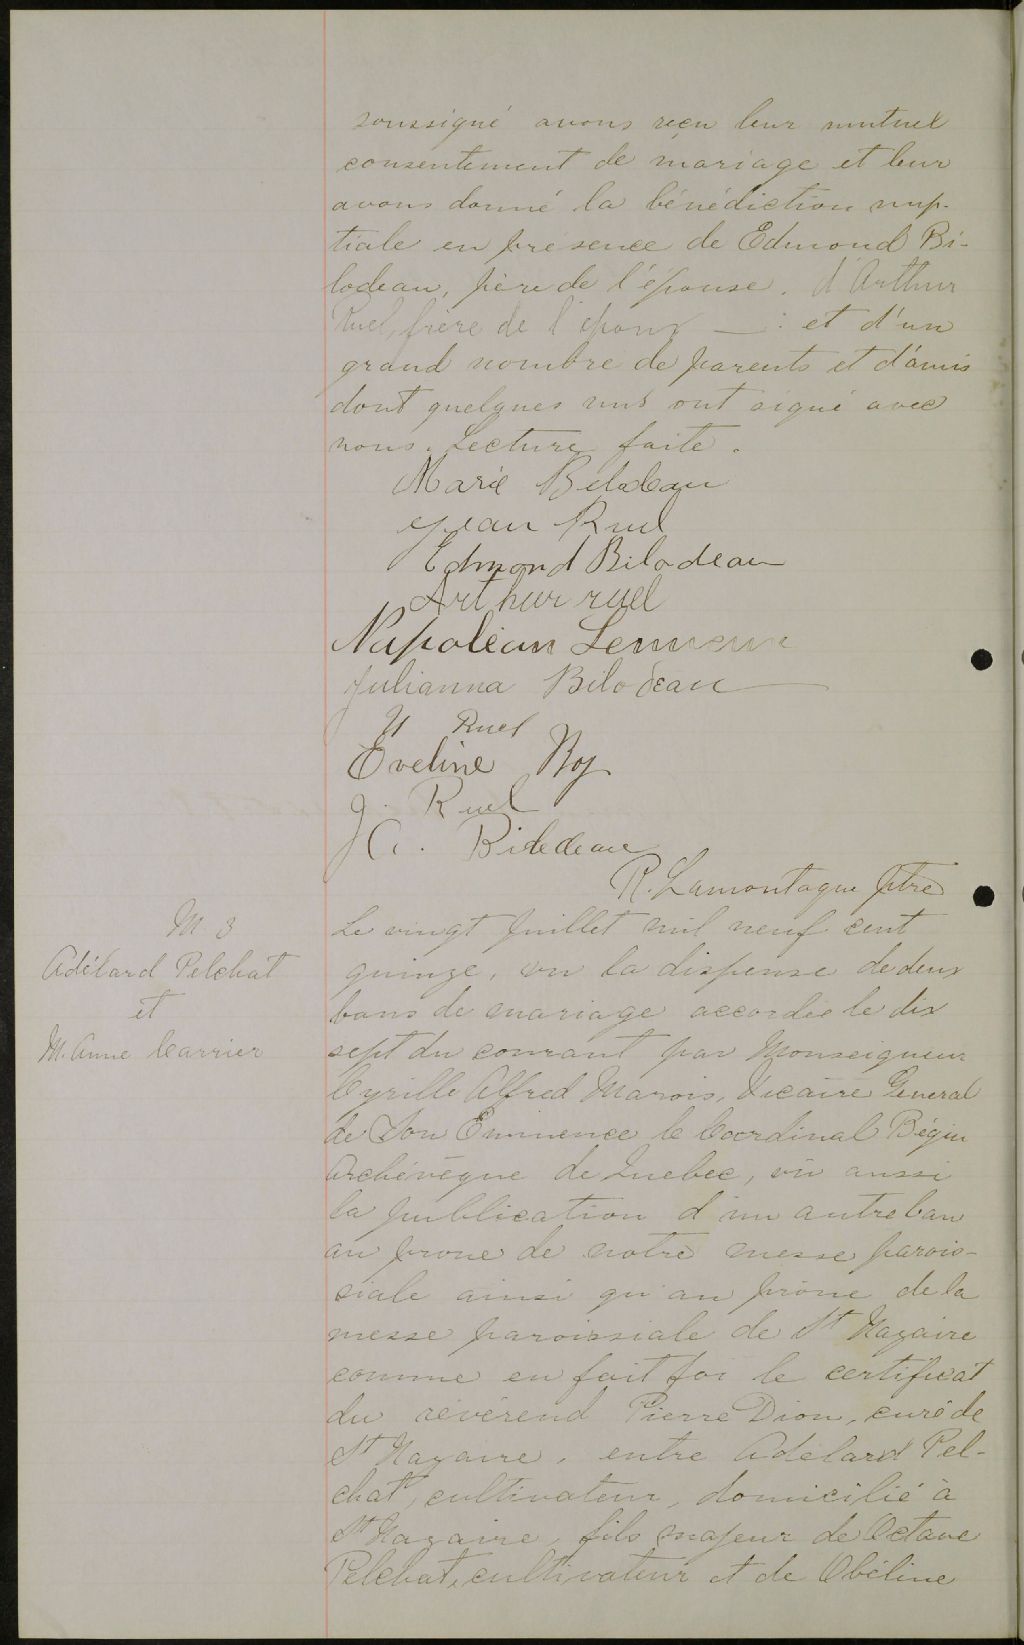 soussigné avons reçu leur mutuel
consentement de mariage et leur
avons donné la bénédiction nup-
tiale en présence de Edmond Bi-
lodeau, père de l'épouse, d'Arthur
Ruel, frère de l'époux — : et d'un
grand nombre de parents et d'amis
dont quelques uns ont signé avec
nous. Lecture faite.
Marie Bilodeau
Jean Ruel
Edmond Bilodeau
Arthur ruel
Napoléon Lemieux
Julianna Bilodeau
Ruel
Eveline Roy
J. Ruel
Bilodeau
R. Lamontagne ptre
M. 3
Adélard Pelchat
et
M. Anne Carrier
Le vingt Juillet mil neuf cent
quinze, vu la dispense de deux
bans de mariage accordée le dix
sept du courant par Monseigneur
Cyrille Alfred Marois, Vicaire General
de Son Eminence le Cardinal Bégin
Archévêque de Quebec, vu aussi
la publication d'un autre ban
au prone de notre messe parois-
siale ainsi qu'au prône de la
messe paroissiale de St Nazaire
comme en fait foi le certificat
du révérend Pierre Dion, curé de
St Nazaire, entre Adelard Pel-
chat, cultivateur, domicilié à
St Nazaire, fils majeur de Octave
Pelchat, cultivateur et de Obéline